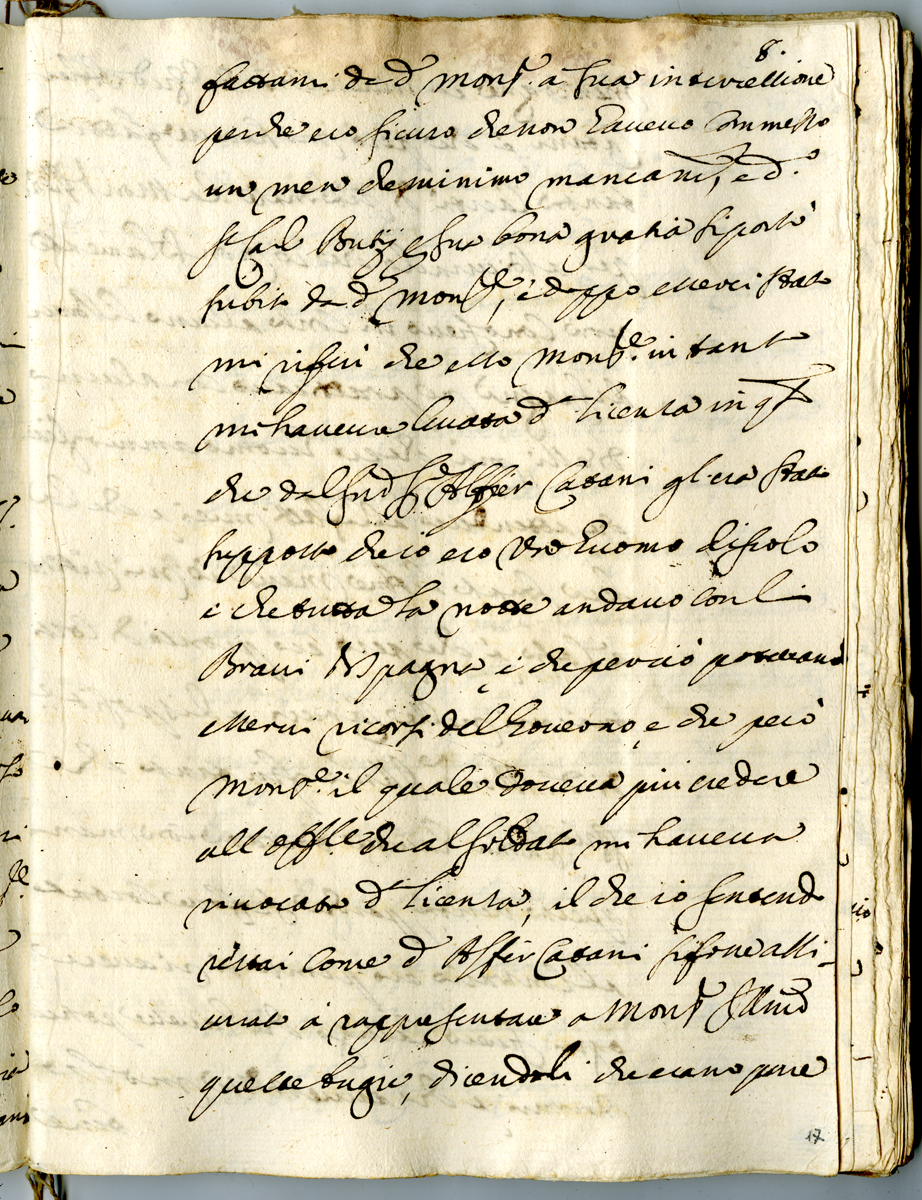 8.
fattami da d. Mons.r à sua intercessione
perche ero sicuro che non havevo commesso
un men che minimo mancam.to, e d.o
s.r Carl Butij sua bona gratia si portò
subito da d. Mons.re, e doppo esserci stato
mi riferì che esso Mons.re in tanto
mi haveva levata d.a licenza in q.to
che dal sud.o s.r Alfier Catani gl'era stato
supposto che io ero un huomo discolo
e che tutta la notte andavo con li
Bravi di spagna, e che perciò potevano
esservi ricorsi del Governo, e che però
Mons.re il quale doveva più credere
all'offle che al soldato mi haveva
rivocato d.a licenza, il che io sentendo
restai come d. Alfier Catani si fosse assi-
curato à rappresentare a Mons.r sud.o
queste bugie, dicendoli che erano pure
17